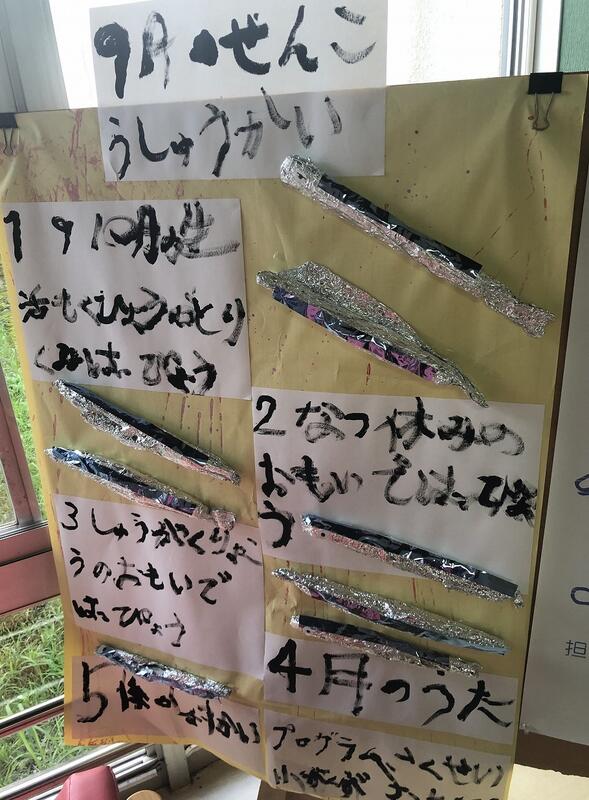 9月のぜんこ
うしゅうかい
1 9月の
活もくひょうととり
くみはっぴょう
2 なつ休みの
おもいではっぴょ
う
3 しゅうがくりょこ
うのおもいで
はっぴょう
4 月のうた
5
プログラムさくせい
担